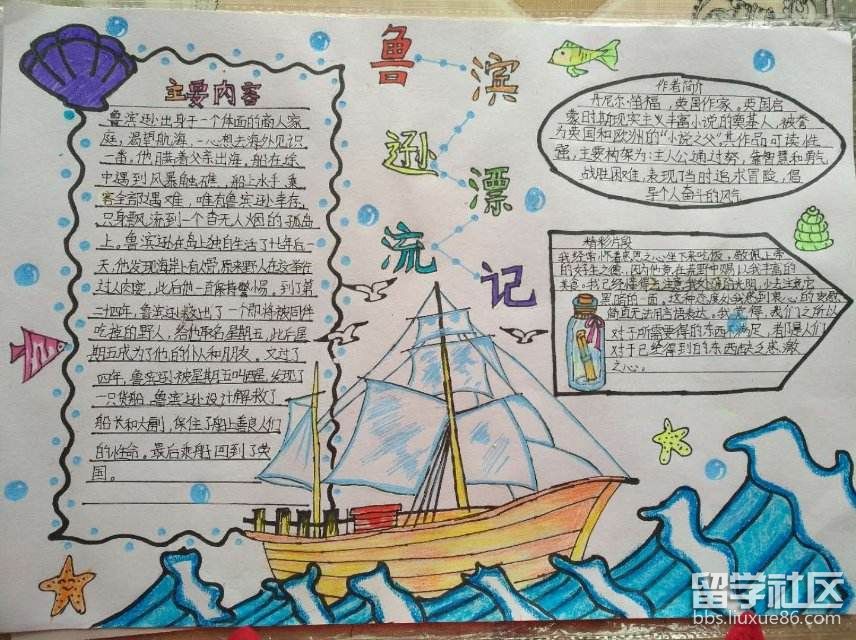 鲁滨逊漂流记
主要内容
鲁滨逊出身于一个体面的商人家
庭，渴望航海，一心想去海外见识
一番。他瞒着父亲出海，船在途
中遇到风暴触礁，船上水手、乘
客全部遇难，唯有鲁滨逊幸存，
只身飘流到一个杳无人烟的孤岛
上。鲁滨逊在岛上独自生活了十几年后一
天，他发现海岸上有人骨，原来野人在这举行
过人肉宴，此后他一直保持警惕。到了第
二十四年，鲁滨逊救出了一个即将被同伴
吃掉的野人，给他取名星期五，此后星
期五成为了他的仆人和朋友。又过了
四年，鲁滨逊被星期五叫醒，发现了
一只货船，鲁滨逊设计解救了
船长和大副，保住了船上善良人们
的性命。最后乘船回到了英
国。
作者简介
丹尼尔·笛福，英国作家。英国启
蒙时期现实主义丰富小说的奠基人，被誉
为英国和欧洲的“小说之父”其作品可读性
强，主要构架为：主人公通过努，靠智慧和勇气
战胜困难，表现了当时追求冒险，倡
导个人奋斗的风气
精彩片段
我经常怀着感恩之心坐下来吃饭，敬佩上帝
的好生之德，因为他竟在荒野中赐以我丰富的
美食。我已经懂得去注意我处境的光明，少去注意它
黑暗的一面。这种态度
简直无法用言语表达。我觉得，我们之所以
对于所需要得的东西不满足，都是人们
对于已经得到的东西缺乏感激
之心。
留学社区
bbs.liuxue86.com